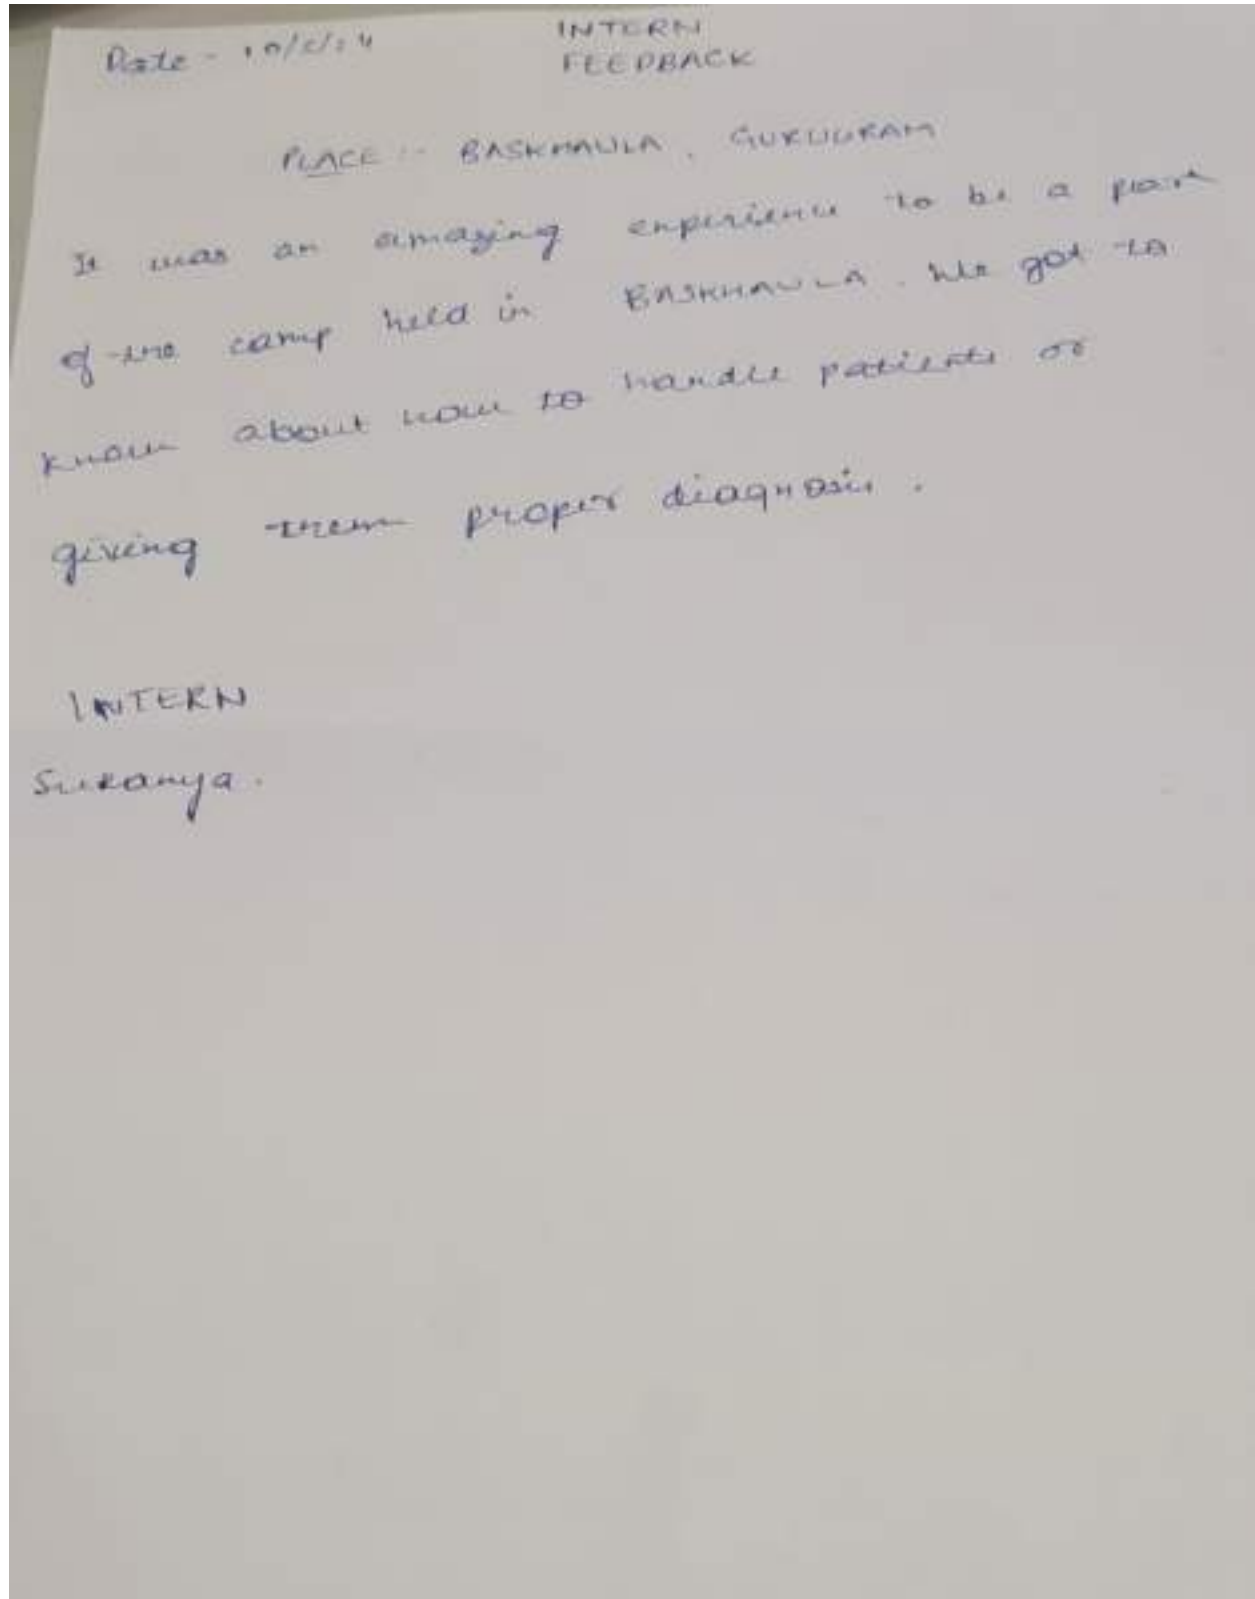 Date - 10/5/24
INTERN
FEEDBACK
PLACE :- BASKHAULA, GURUGRAM
It was an amazing experience to be a part
of the camp held in BASKHAULA. We got to
know about how to handle patients or
giving them proper diagnosis.
INTERN
Sukanya.